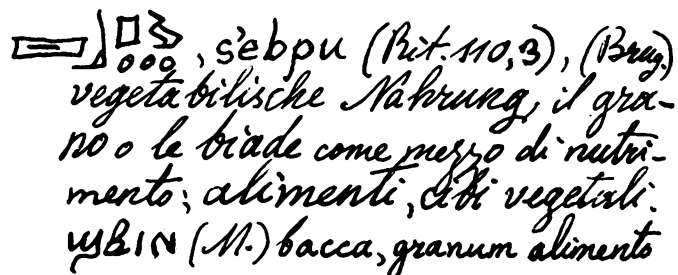 , s'ebpu (Rit. 110,3), (Brug.)
vegetabilische Nahrung, il gra-
no o le biade come mezzo di nutri-
mento; alimenti, cibi vegetali.
ϣⲃⲓⲛ (M.) bacca, granum alimento